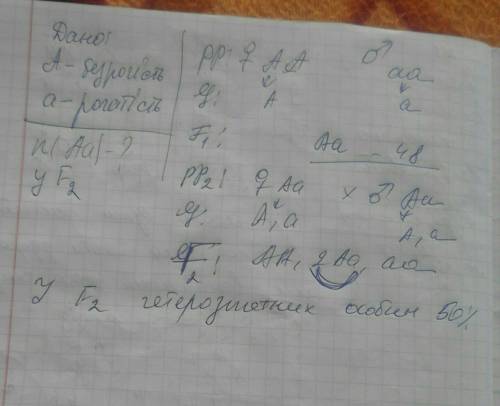 Дано:
А - безрогість
а - рогатість
n(Aa) - ?
у F2
PP: ♀ AA ♂ aa
g: A a
F1: Aa - 48
PP2: ♀ Aa x ♂ Aa
g: A, a A, a
F2: AA, 2Aa, aa
У F2 гетерозиготник особин 50%